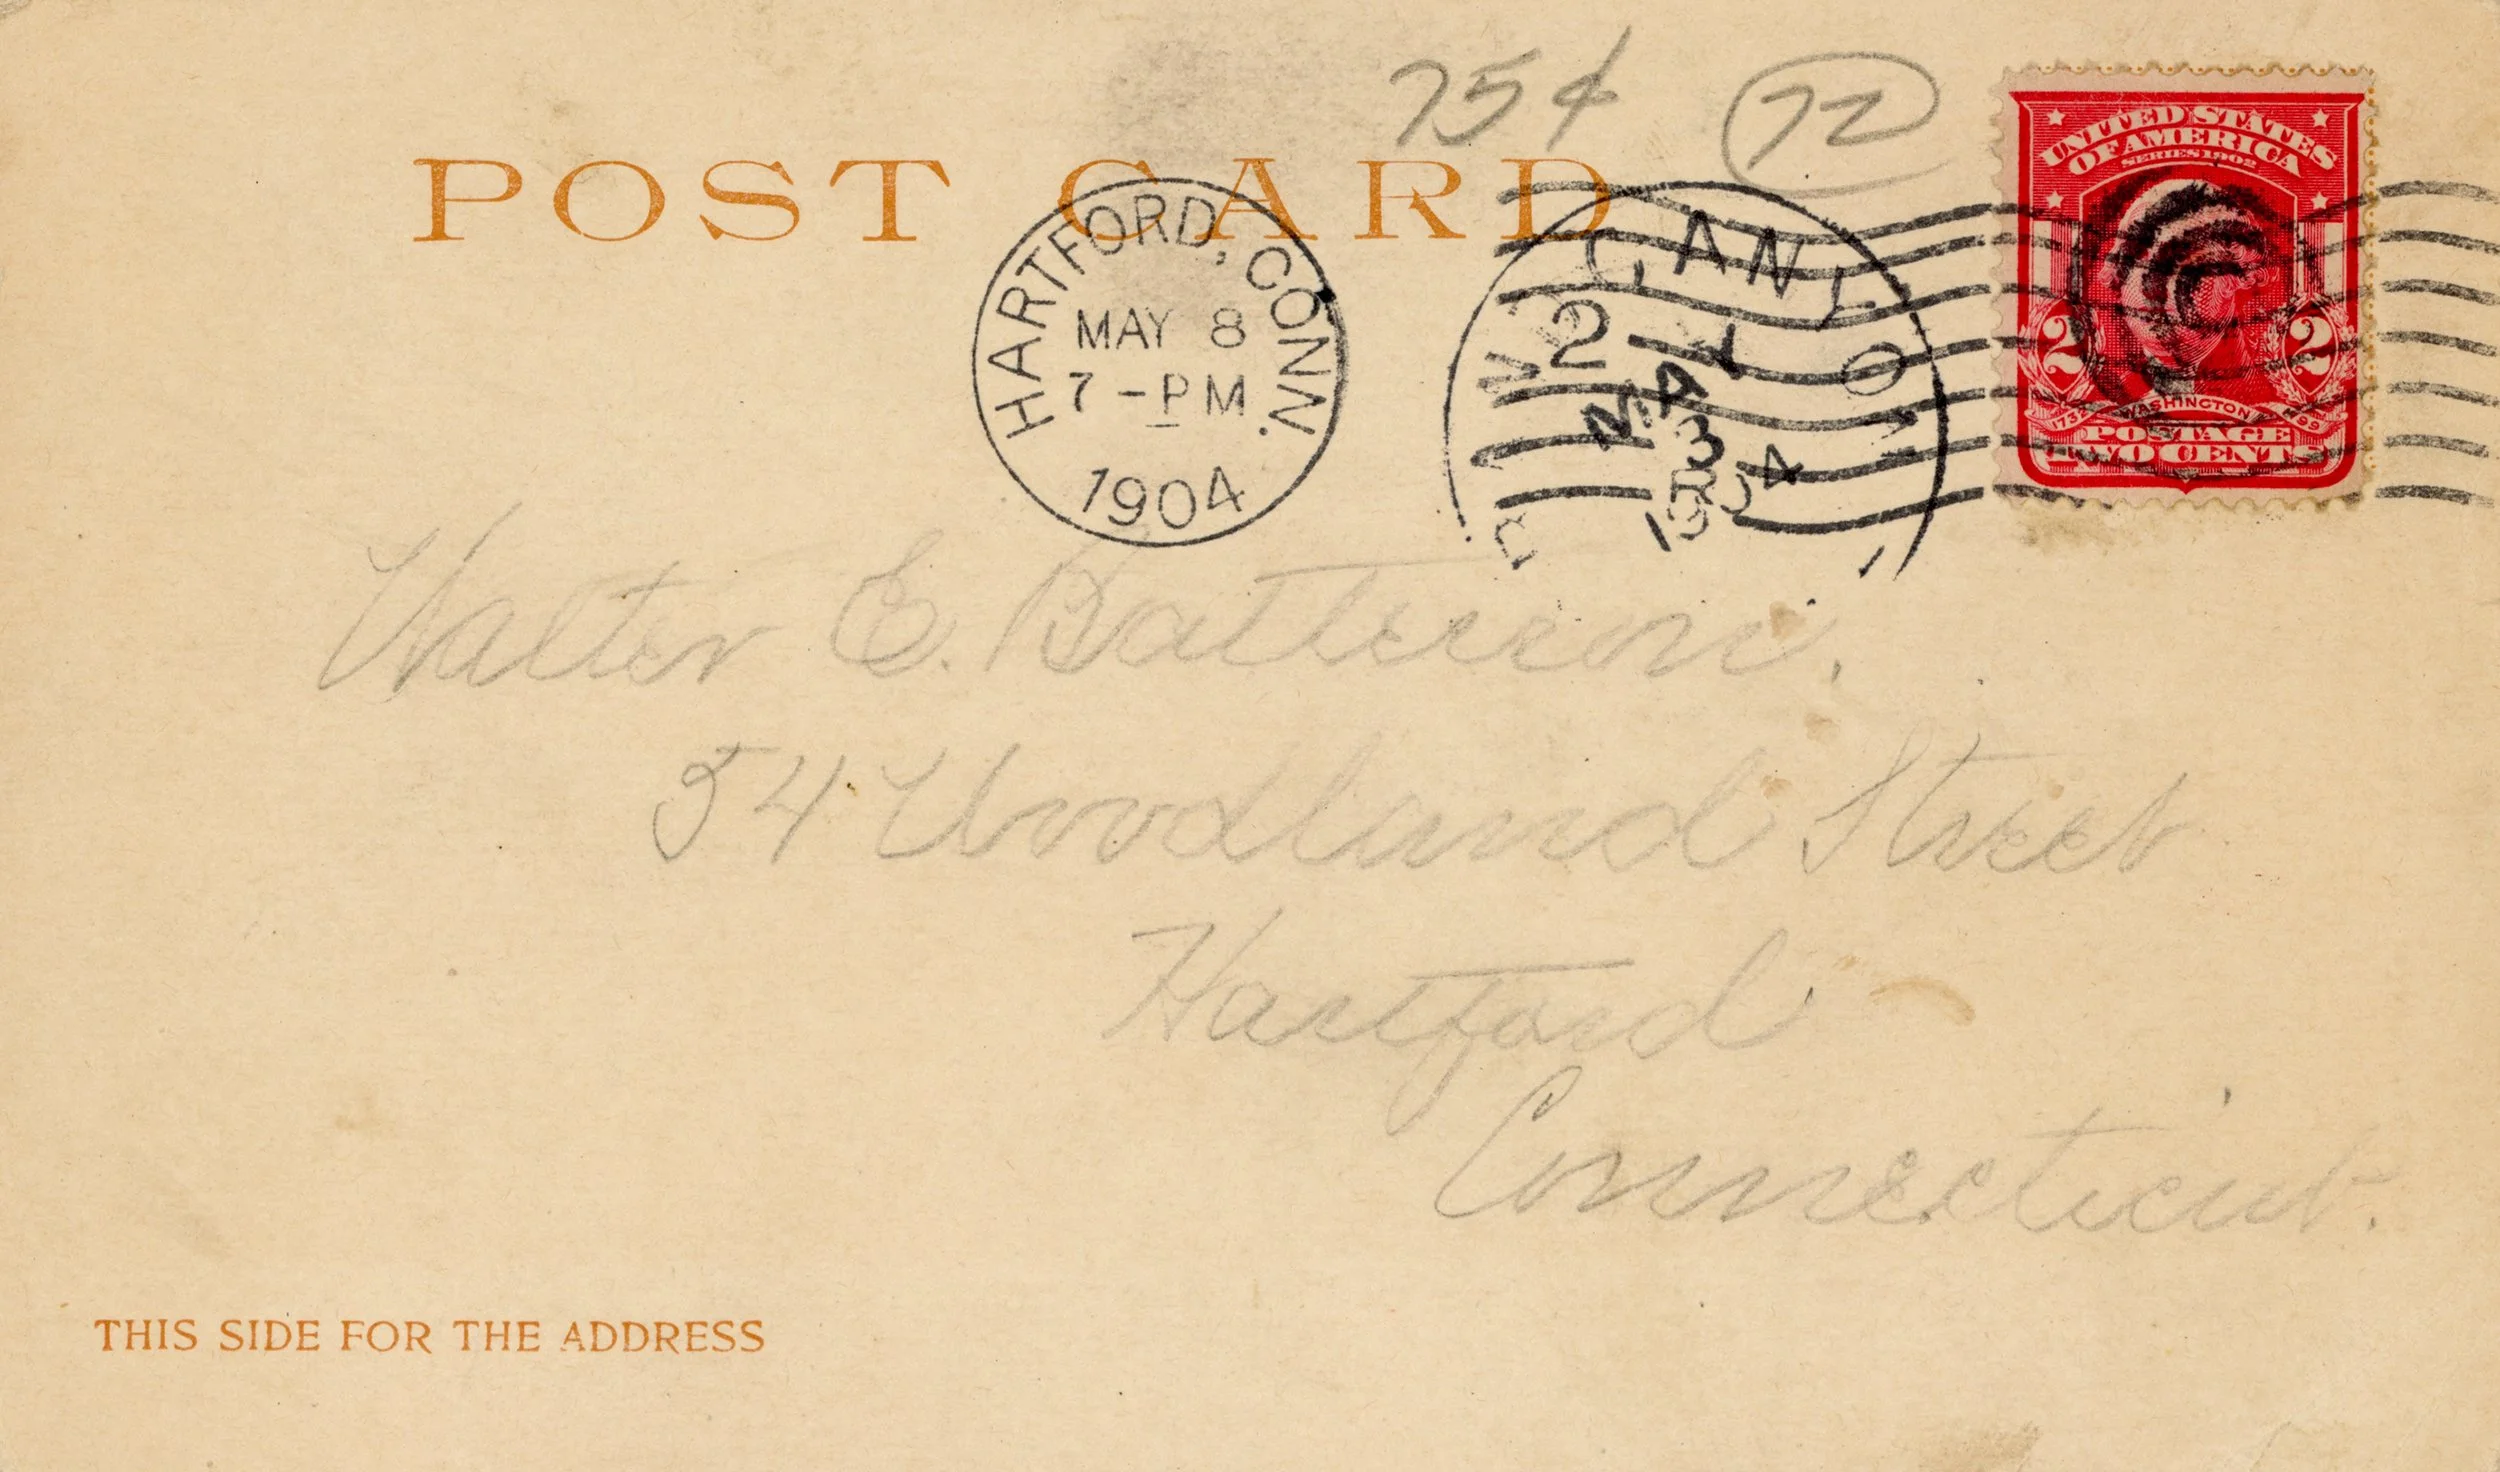 75¢ 72
POST CARD
UNITED STATES
OF AMERICA
SERIES 1902
2 2
1732 WASHINGTON 1799
POSTAGE
TWO CENTS
HARTFORD, CONN.
MAY 8
7-PM
1904
2
MAY
3
1904
Walter E. Batterson.
54 Woodland Street
Hartford
Connecticut.
THIS SIDE FOR THE ADDRESS